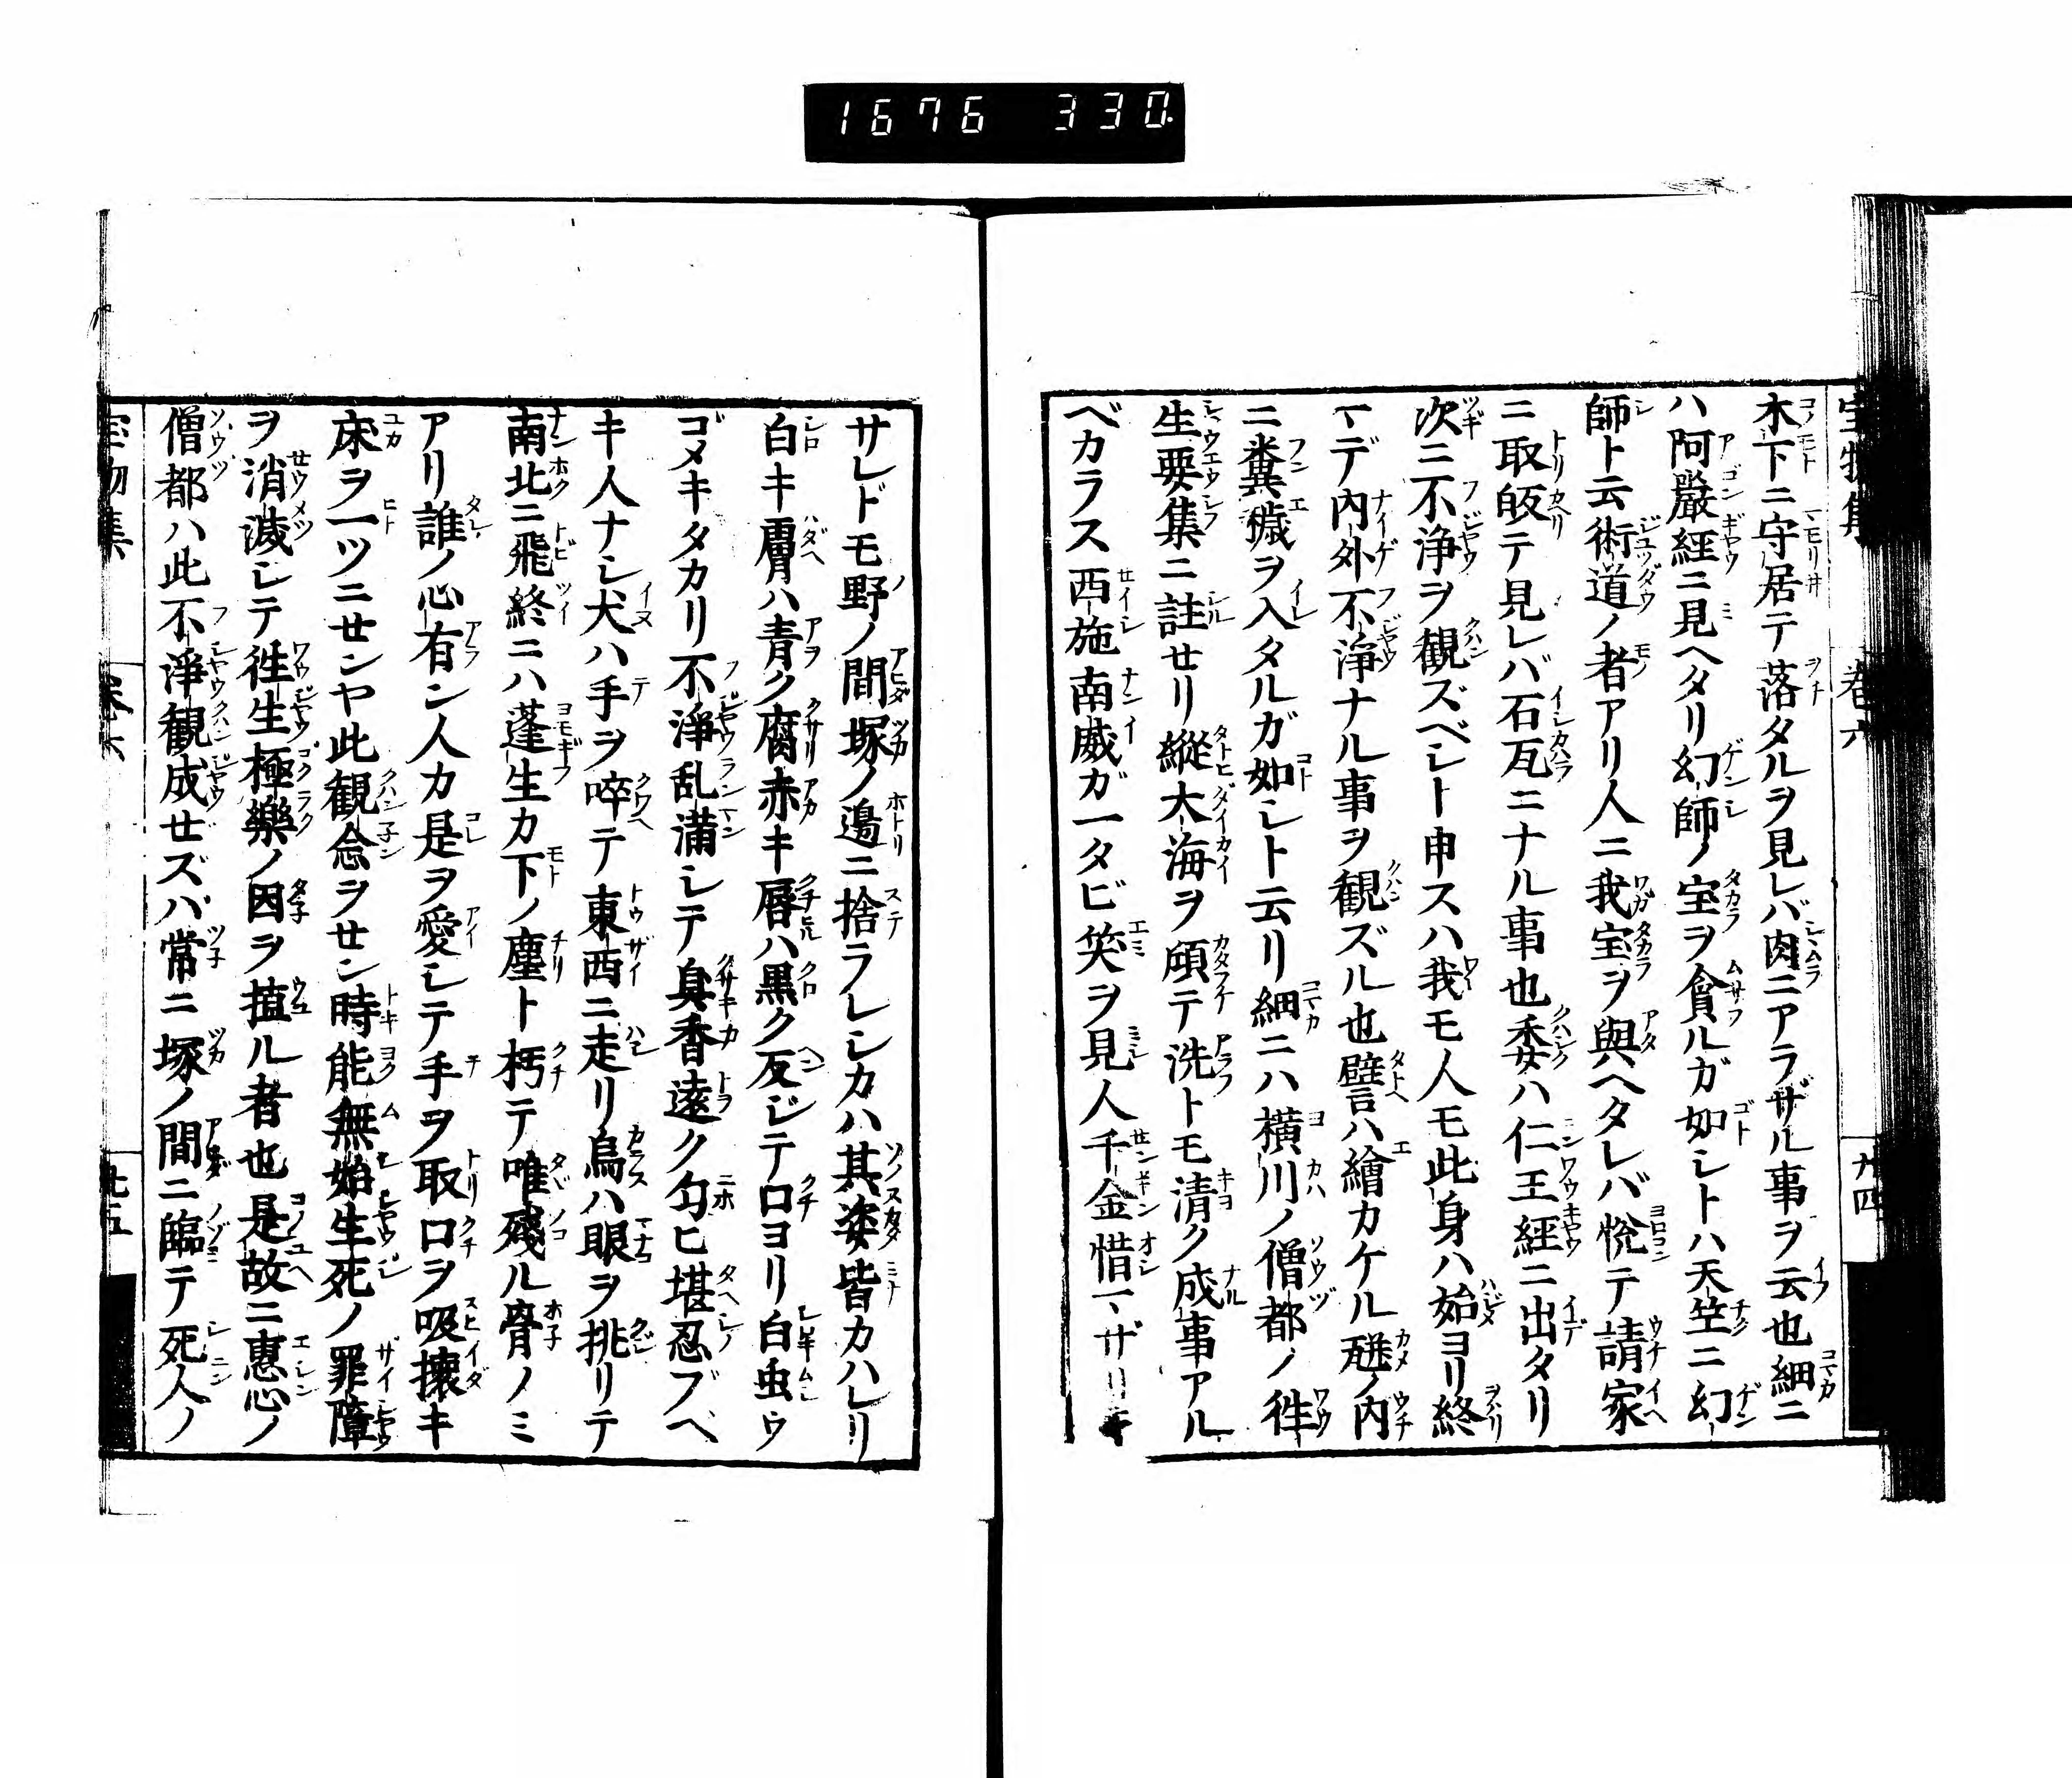 1676 330
宝物集 巻六 九四
木下ニ守居テ落タルヲ見レバ肉ニアラザル事ヲ云也細ニ
ハ阿嚴經ニ見ヘタリ幻師ノ宝ヲ貪ルガ如シトハ天竺ニ幻
師ト云術道ノ者アリ人ニ我宝ヲ與ヘタレバ悦テ請家
ニ取皈テ見レバ石瓦ニナル事也委ハ仁王經ニ出タリ
次ニ不浄ヲ観ズベシト申スハ我モ人モ此身ハ始ヨリ終
マデ内外不浄ナル事ヲ観ズル也譬ハ繪カケル瓶ノ内
ニ糞穢ヲ入タルガ如シト云リ細ニハ横川ノ僧都ノ徃
生要集ニ註セリ縱大海ヲ傾テ洗トモ清ク成事アル
ベカラス西施南威ガ一タビ笑ヲ見人千金惜マザリキ
サレドモ野ノ間塚ノ邉ニ捨ラレシカハ其姿皆カハレリ
白キ膚ハ青ク腐赤キ唇ハ黒ク反ジテ口ヨリ白虫ウ
ゴメキタカリ不浄乱満シテ臭香遠ク匂ヒ堪忍ブベ
キ人ナシ犬ハ手ヲ啐テ東西ニ走リ烏ハ眼ヲ挑リテ
南北ニ飛終ニハ蓬生カ下ノ塵ト朽テ唯殘ル骨ノミ
アリ誰ノ心有ン人カ是ヲ愛シテ手ヲ取口ヲ吸懐キ
床ヲ一ツニセンヤ此観念ヲセン時能無始生死ノ罪障
ヲ消滅シテ徃生極樂ノ因ヲ植ル者也是故ニ恵心ノ
僧都ハ此不淨観成セズハ常ニ塚ノ間ニ臨テ死人ノ
宝物集 巻六 九五